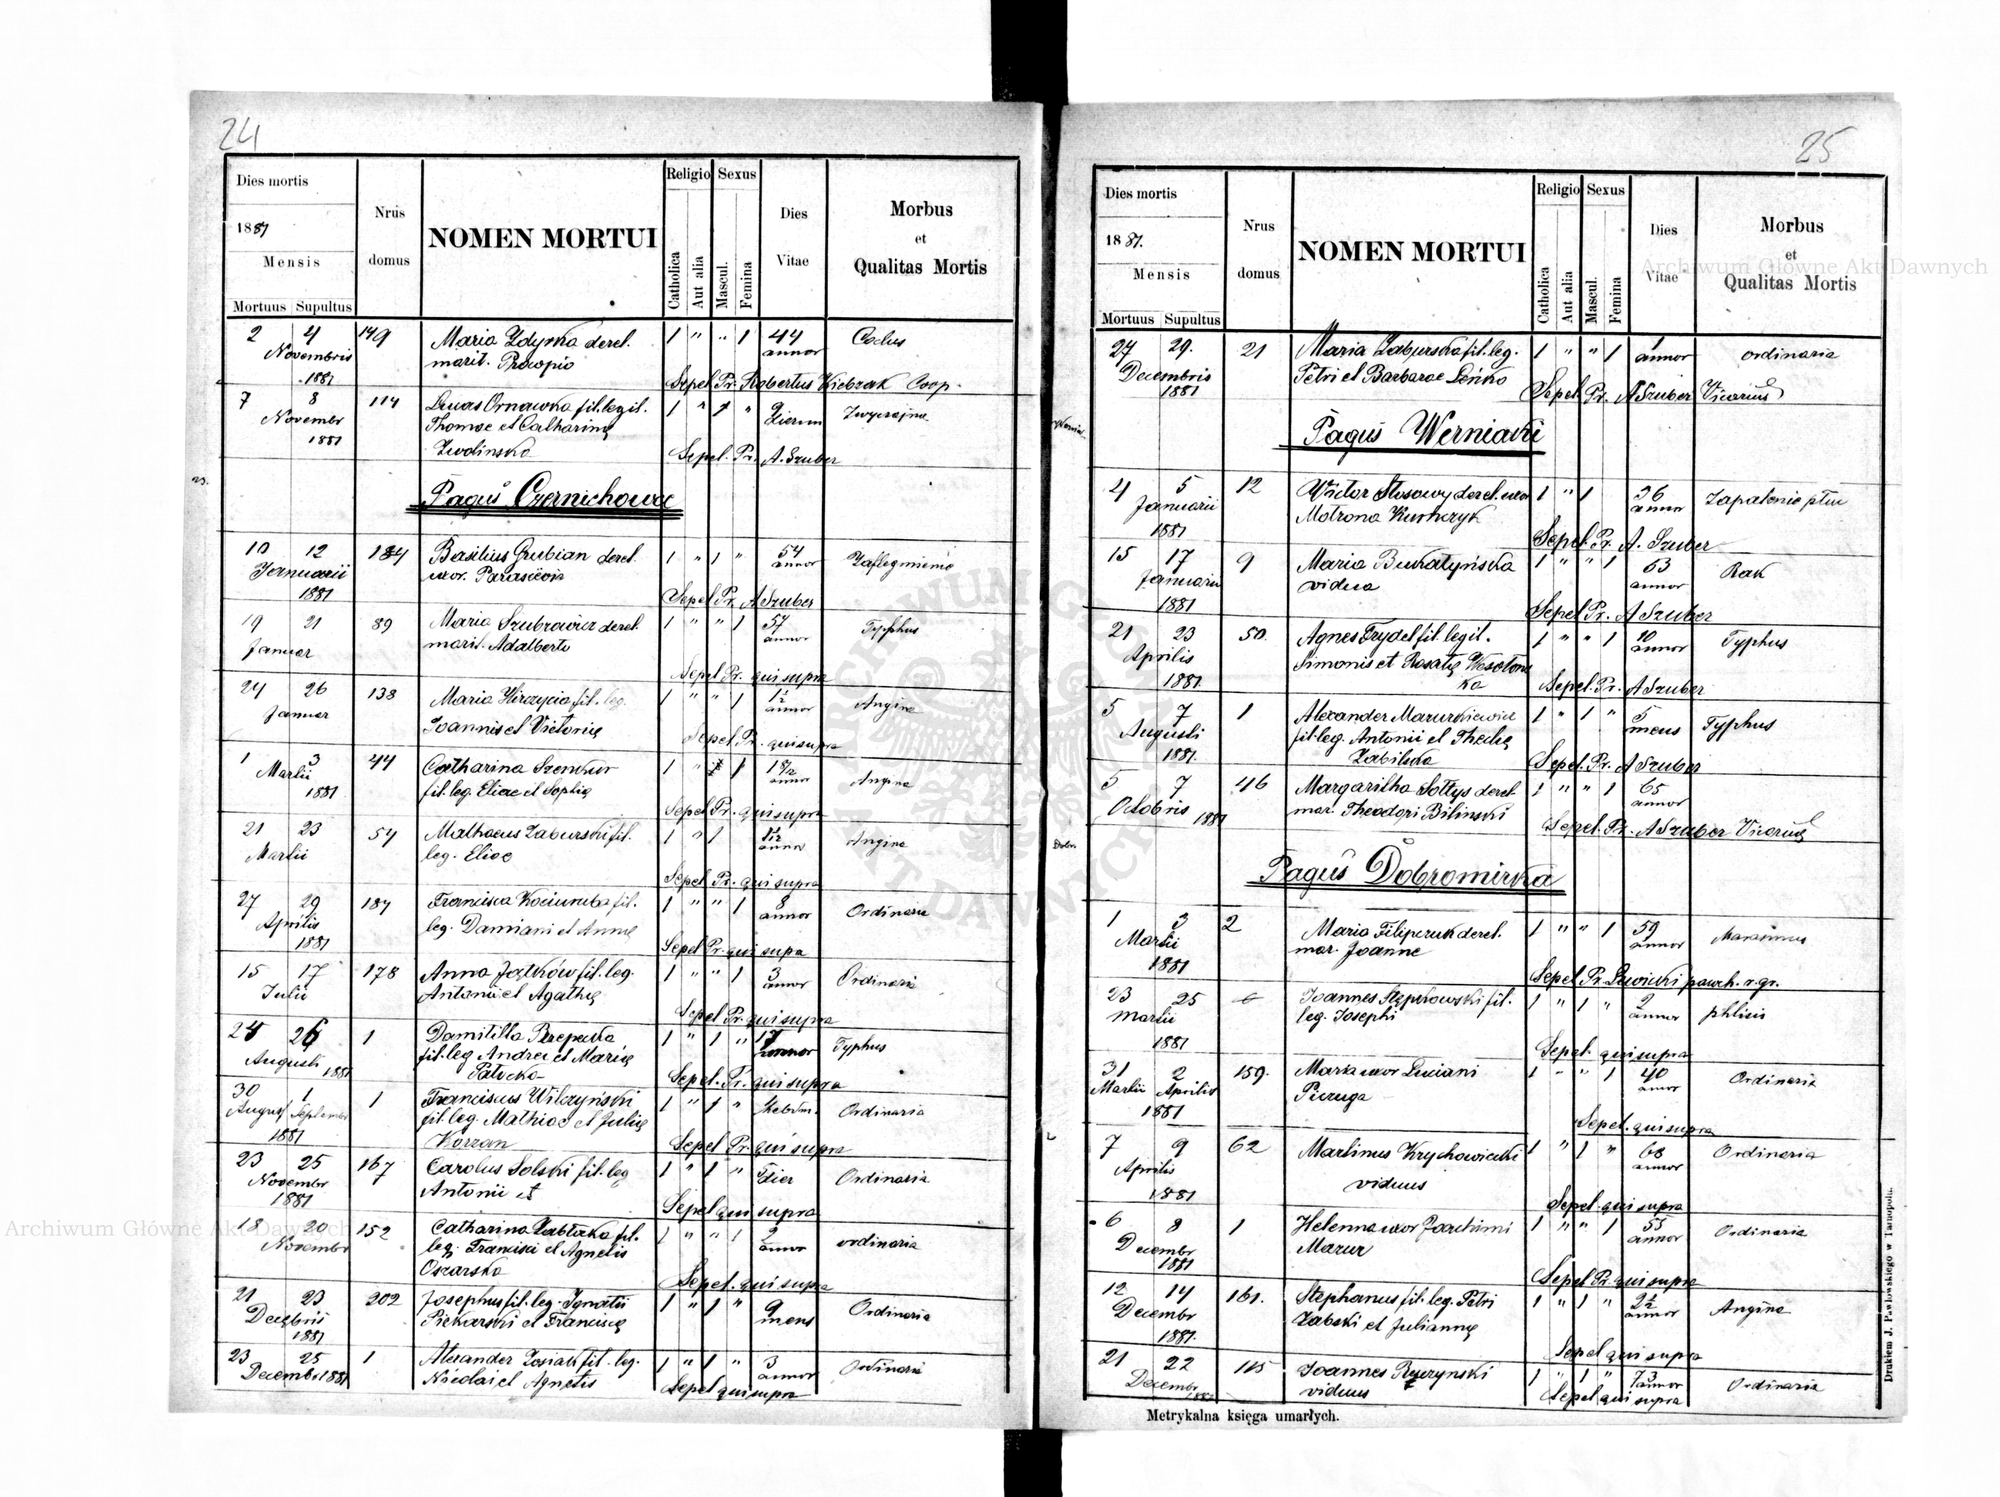 24
Dies mortis
1881
Mensis
Mortuus Supultus
Nrus domus
NOMEN MORTUI
Religio
Catholica
Aut alia
Sexus
Mascul.
Femina
Dies Vitae
Morbus
et
Qualitas Mortis
2 4 149 Maria Zdyrka derel. 1 " " 1 44
Novembris marit. Procopio annor
1881 Sepel. Pr. Robertus Coop.
7 8 114 Lucas Ornawka fil. legit. 1 " 1 " 9 Zwyczajna
Novembr Thomae et Catharinę dierum
1881 Zwolinska Sepel. Pr. A. Szuber
Pagus Czernichowce
10 12 184 Basilius Grubian derel. 1 " 1 " 54 Zaflegmienie
Januarii uxor. annor
1881 Sepel. Pr. A Szuber
19 21 89 Maria Szubrawicz derel. 1 " " 1 57 Typhus
Januar marit. Adalberto annor
Sepel Pr. qui supra
24 26 138 Maria fil. leg. 1 " " 1 1½ Angina
Januar Joannis et Victorię annor
Sepel. Pr. qui supra
1 3 44 Catharina 1 " 1 Angina
Martii fil. leg. Eliae et Sophię annor
1881 Sepel Pr. qui supra
21 23 54 Mathaeus Zaburski fil. 1 " 1 Angina
Martii leg. Eliae annor
Sepel Pr. qui supra
27 29 184 Francisca Kociumba fil. 1 " " 1 8 Ordinaria
Aprilis leg. Damiani et Annę annor
1881 Sepel Pr. qui supra
15 17 178 Anna fil. leg. 1 " " 1 3 Ordinaria
Julii Antonii et Agathę annor
Sepel Pr. qui supra
24 26 1 Domitilla Perepecka 1 " 1 " 17 Typhus
Augusti fil. leg Andrei et Marię annor
1881 Patocka Sepel. Pr. qui supra
30 1 1 Franciscus Wilczyński 1 " 1 " Ordinaria
August Septembr fil. leg. Mathiae et Julię
1881 Korzan Sepel Pr. qui supra
23 25 167 Carolus Solski fil. leg 1 " 1 " dier Ordinaria
Novembr Antonii et
1881 Sepel qui supra
18 20 152 Catharina Zabłocka fil. 1 " " 1 2 ordinaria
Novembr leg. Francisci et Agnetis annor
Oszarska Sepel. qui supra
21 23 202 Josephus fil. leg. Ignatii 1 " 1 " 9 Ordinaria
Decebris Piekarski et Franciscę mens
1881
23 25 1 Alexander Zosiak fil. leg. 1 " 1 " 3 Ordinaria
Decembr 1881 Nicolai et Agnetis annor
Sepel qui supra
25
Dies mortis
1881.
Mensis
Mortuus Supultus
Nrus domus
NOMEN MORTUI
Religio
Catholica
Aut alia
Sexus
Mascul.
Femina
Dies Vitae
Morbus
et
Qualitas Mortis
27 29. 21 Maria Zaburska fil. leg. 1 " " 1 1 ordinaria
Decembris Petri et Barbarae Leńko annor
1881 Sepel Pr. A Szuber Vicarius
Pagus Werniaki
4 5 12 Victor Stosowy derel. uxor 1 " 1 36 Zapalenie płuc
Januarii Motrona annor
1881 Sepel. Pr. A. Szuber
15 17 9 Maria Bukatyńska 1 " " 1 63 Rak
Januarii vidua annor
1881 Sepel Pr. A Szuber
21 23 50. Agnes Frydel fil. legit. 1 " " 1 10 Typhus
Aprilis Simonis et Rosalię Wesołow annor
1881 ka Sepel. Pr. A Szuber
5 7 1 Alexander Mazurkiewicz 1 " 1 " 5 Typhus
Augusti fil. leg. Antonii et Theclę mens
1881. Zabilska Sepel. Pr. A Szuber
5 7 46 Margaritha Sołtys derel 1 " " 1 65
Octobris mar. Theodori Bilinski annor
1881 Sepel. Pr. A Szuber Vicarius
Pagus Dobromirka
1 3 2 Maria Filipczuk derel. 1 " " 1 59 Marasmus
Martii mar. Joanne annor
1881 Sepel Pr. Lewicki paroch. r. gr.
23 25 Joannes Stępkowski fil. 1 " 1 " 2 phtisis
Martii leg. Josephi annor
1881 Sepel. qui supra
31 2 159. Maria uxor Luciani 1 " " 1 40 Ordinaria
Martii Aprilis Pieruga annor
1881 Sepel. qui supra
7 9 62 Martinus Krychowiecki 1 " 1 " 68 Ordinaria
Aprilis viduus annor
1881 Sepel. qui supra
6 8 1 Helenna uxor Joachimi 1 " " 1 55 Ordinaria
Decembr Mazur annor
1881 Sepel Pr. qui supra
12 14 161. Stephanus fil. leg. Petri 1 " 1 " 2½ Angina
Decembr Zabski et Juliannę annor
1881. Sepel qui supra
21 22 115 Joannes viduus 1 " 1 " 73 Ordinaria
Decembr annor
Sepel qui supra
Metrykalna księga umarłych.
Drukiem J. Pawłowskiego w Tarnopolu.
Archiwum Główne Akt Dawnych
Archiwum Główne Akt Dawnych
ARCHIWUM GŁÓWNE AKT DAWNYCH